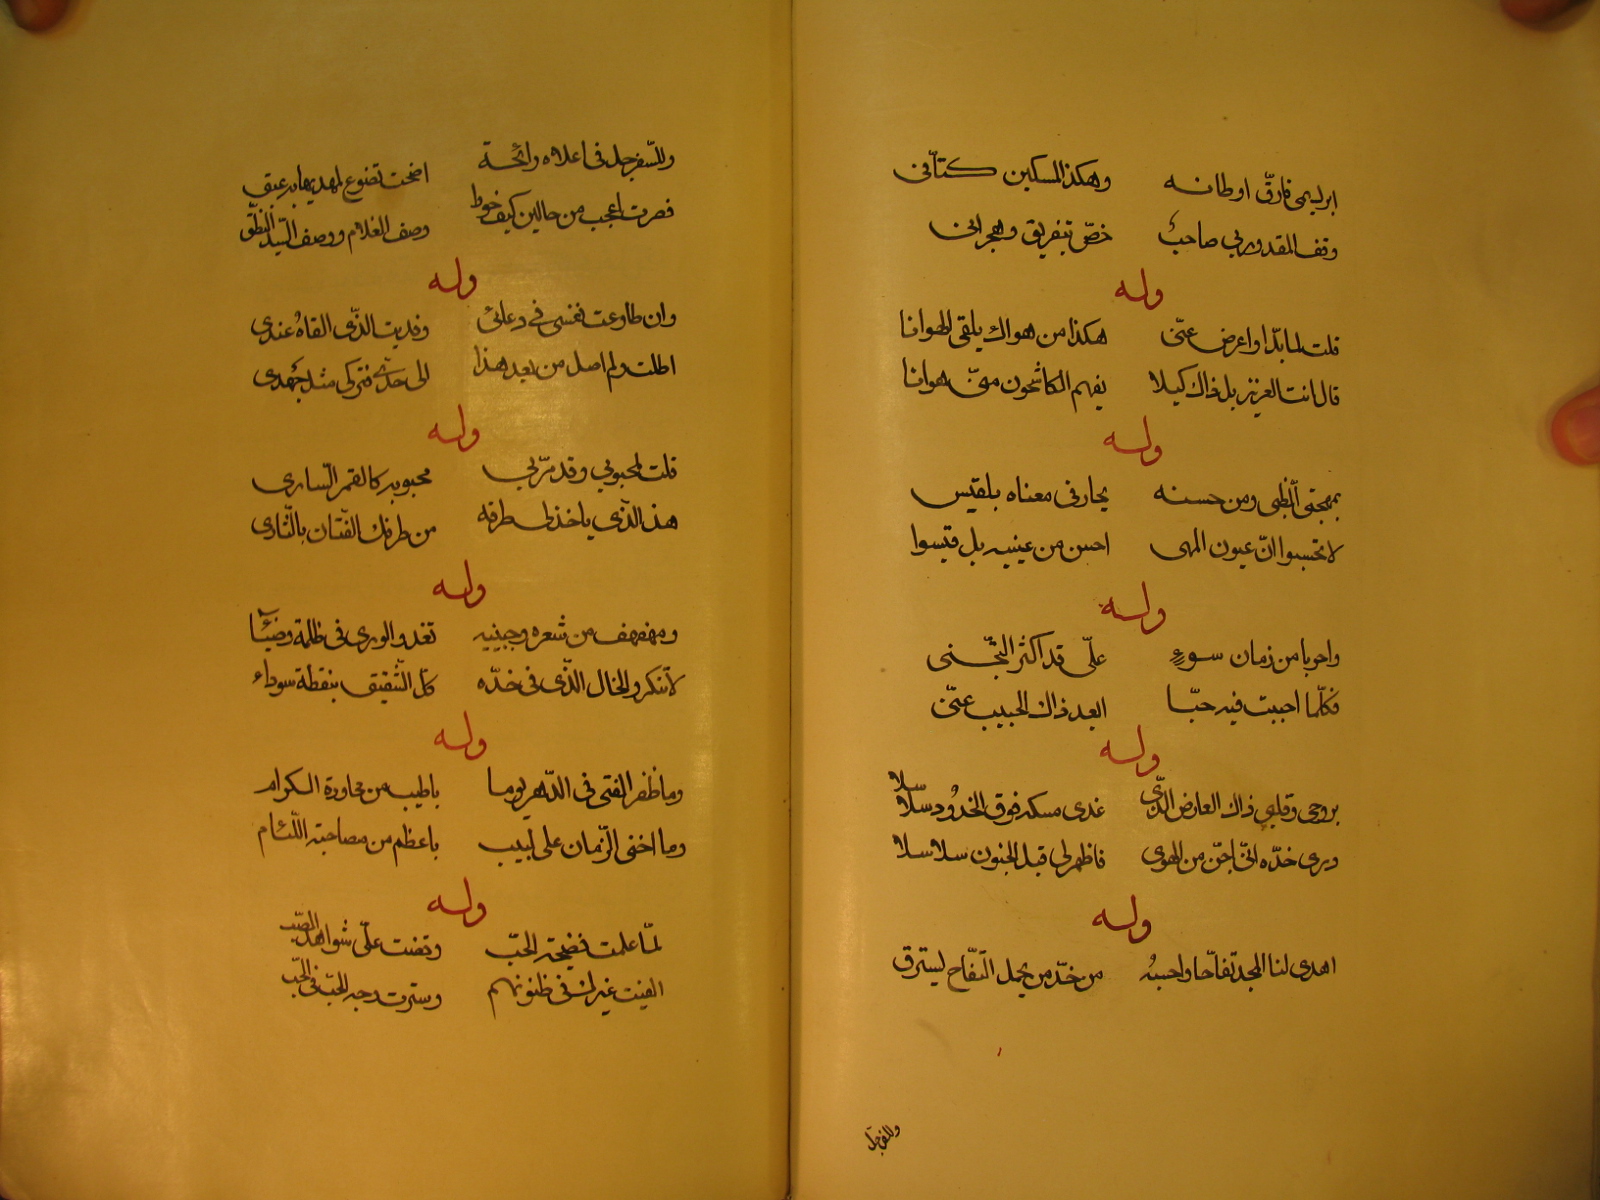 ابريسمى فارق اوطانه وهكذا المسكين كتانى
وقف المقدور بى صاحب خص بتفريق وهجرانى
وله
قلت لما بدا واعرض عنى هكذا من هواك يلقى الهوانا
قال انت العزيز بل ذاك كيلا يفهم الكاشحون منى هوانا
وله
بمهجتى الظبى ومن حسنه يحار فى معناه بلقيس
لا تحسبوا ان عيون المهى احسن من عينيه بل قيسوا
وله
واحربا من زمان سوء على قد اكثر التجنى
فكلما احببت فيه حبا ابعد ذاك الحبيب عنى
وله
بروحى وقلبى ذاك العارض الذى غدى مسكه فوق الخدود سلاسلا
ودرى خده انى اجن من الهوى فاظهر لى قبل الجنون سلاسلا
وله
اهدى لنا المجد تفاحا واحسبه من خد من يحمل التفاح يسترق
وللسفرجل
وللسفرجل فى اعلاه رائحة اضحت تضوع لمهديها به عبق
فصرت اعجب من حالين كيف خوط وصف الغلام ووصف السيد النطق
وله
وان طاوعت نفسى فى دعائى وفديت الذى القاه عندى
اطلت ولم اصل من بعد هذا الى حدى فتركى مثل جهدى
وله
قلت لمحبوبى وقد مر بى محبوبه كالقمر السارى
هذا الذى ياخذ لى طرفه من طرفك الفتان بالثارى
وله
ومهفهف من شعره وجبينه تغدو الورى فى ظلمة وضياء
لا تنكروا الخال الذى فى خده كل الشقيق بنقطة سوداء
وله
وما ظفر الفتى فى الدهر يوما باطيب من محاورة الكرام
وما اخنى الزمان على لبيب باعظم من مصاحبة اللئام
وله
لما علمت فضيحة الحب وقضت على شواهد الصب
القيت غيرك فى ظنونهم وسترت وجه الحب فى الحب